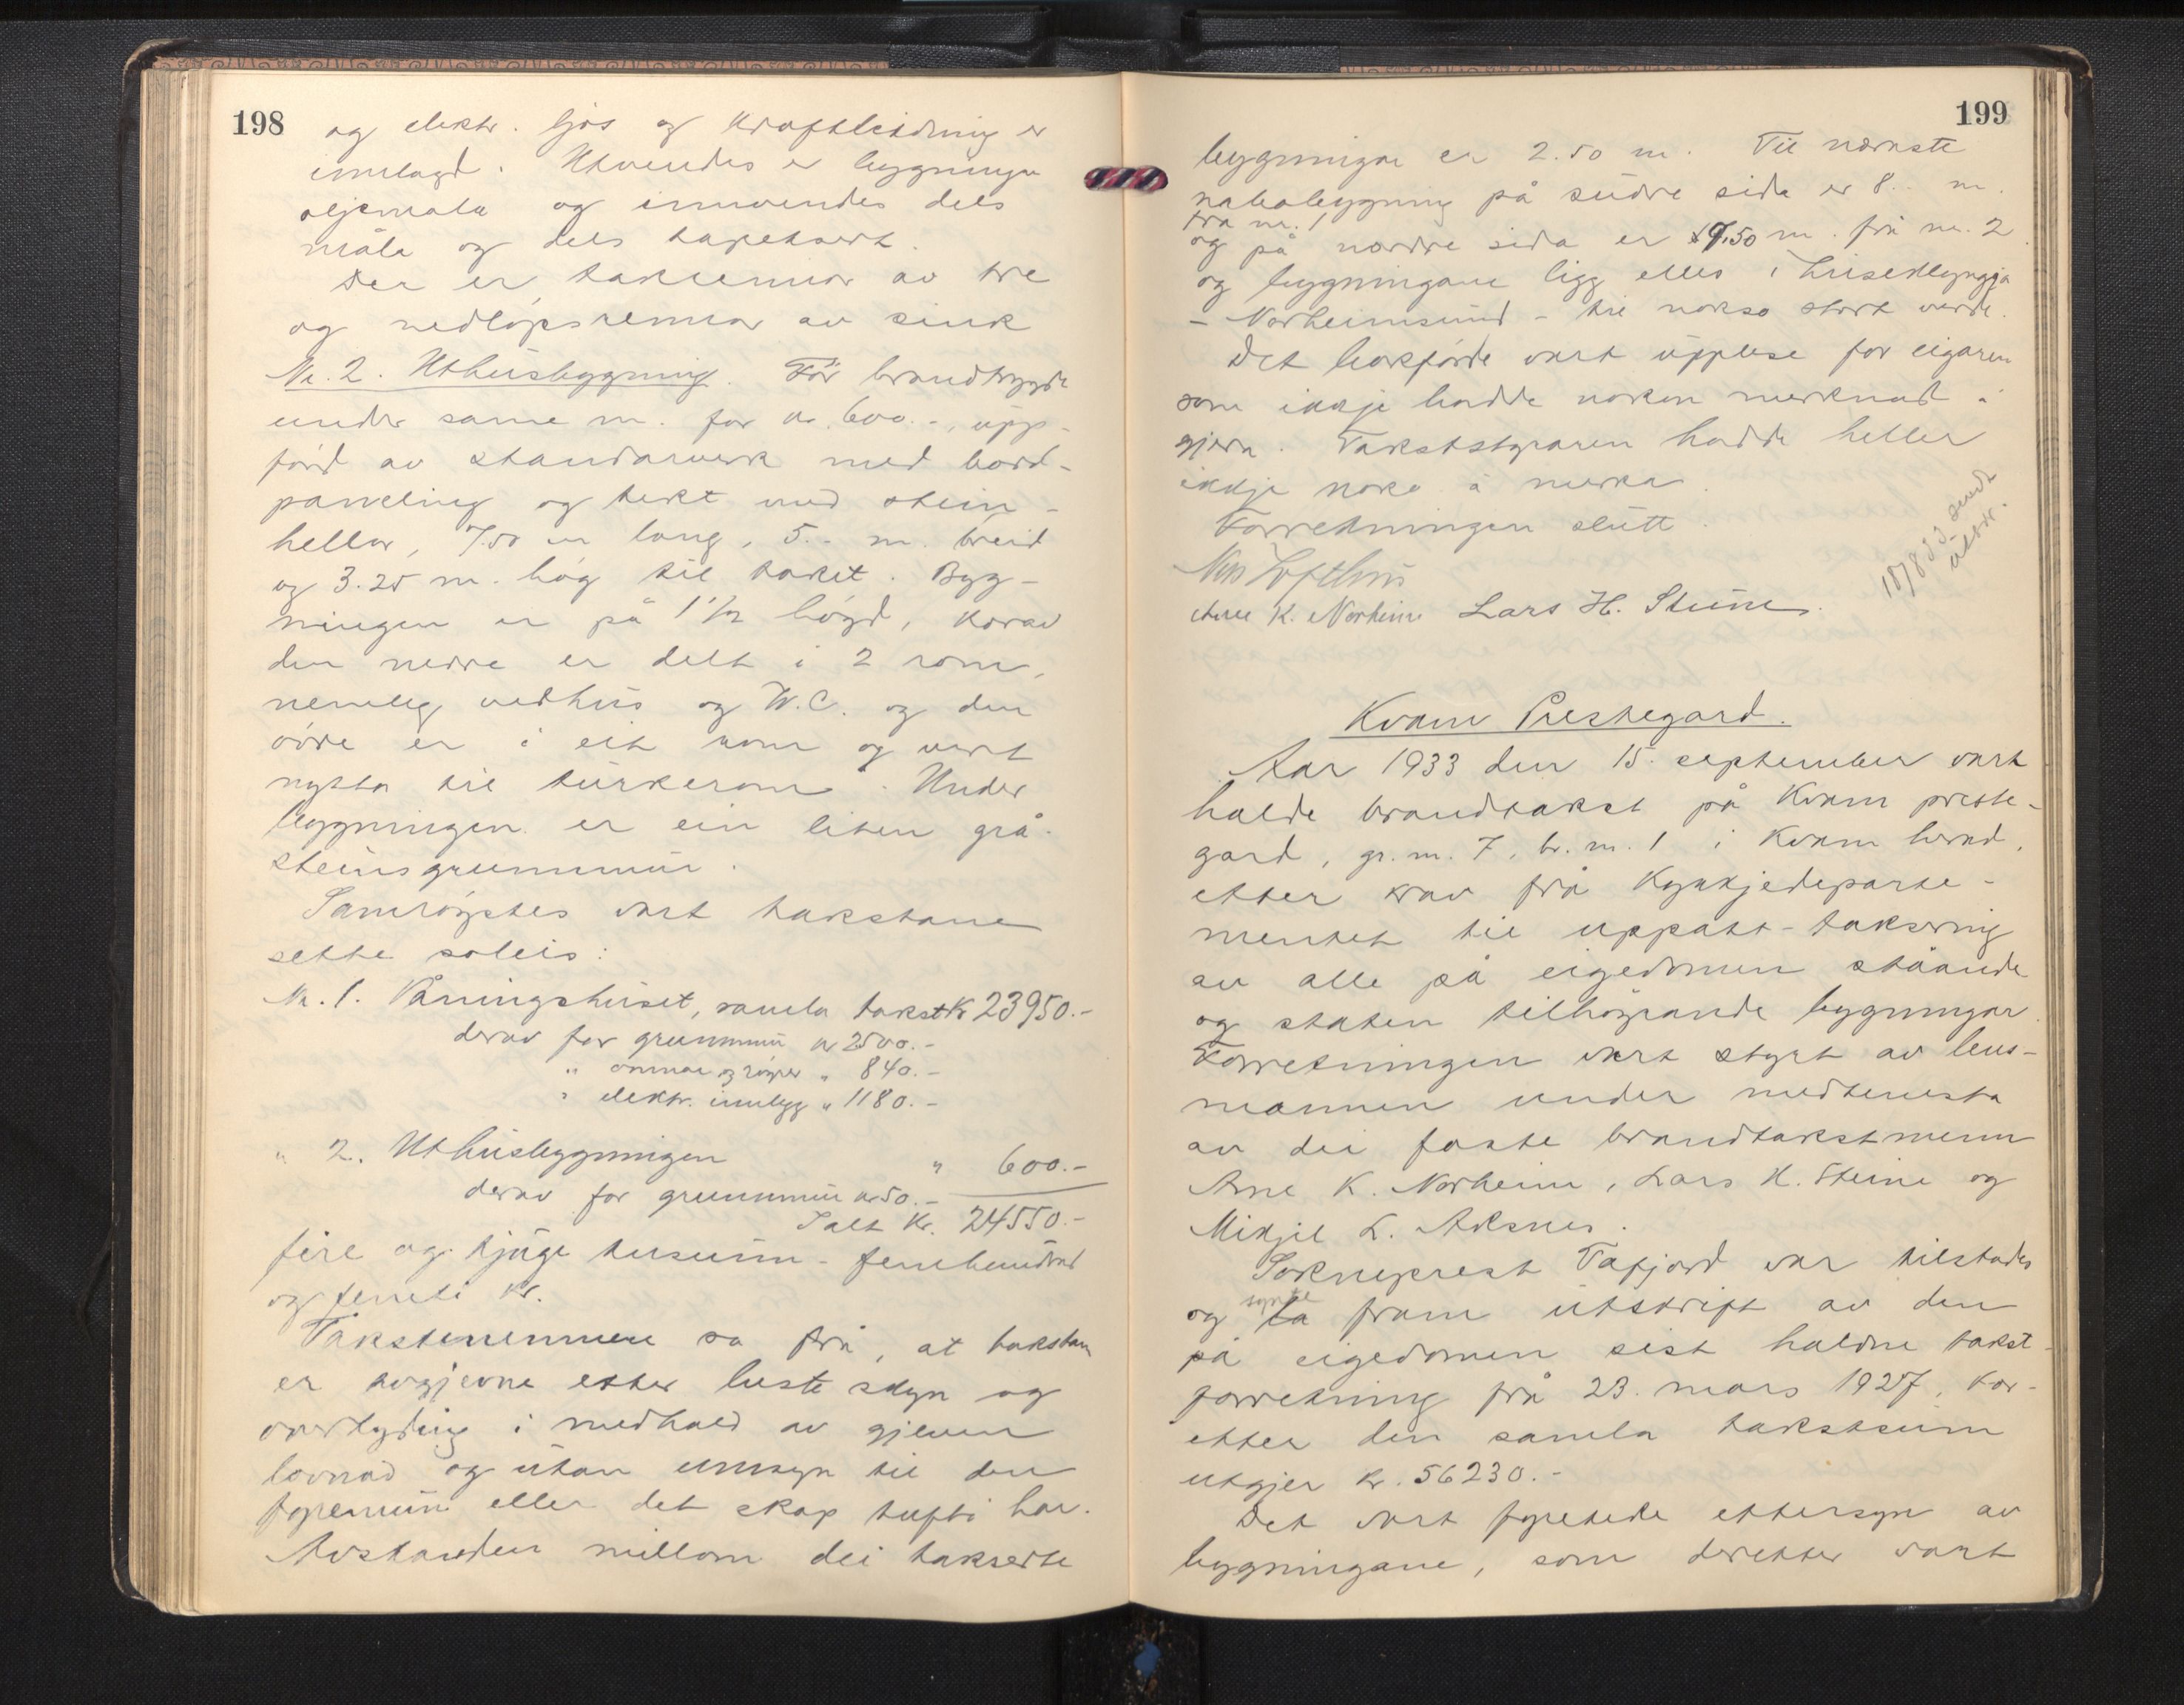 198
og elektr. ljos og kraftleidning er
innlagd. Utvendes er bygningen
oljemåla og innvendes dels
måla og dels tapetsert.
Der er takrennor av tre
og nedløpsrennor av sink
Nr. 2. Uthusbygning. Før brandtrygda
under same nr. for kr. 600.-, upp-
førd av standarverk med bord-
paneling og tekt med stein-
hellor, 7.50 m lang, 5.- m. breid
og 3.25 m. høg til taket. Byg-
ningen er på 1 1/2 høgd, korav
den nedre er delt i 2 rom,
nemleg vedhus og W.C. og den
øvre er i eit rom og vert
nytta til turkerom. Under
bygningen er ein liten grå-
steinsgrunnmur.
Samrøystes vart takstane
sette soleis:
Nr. 1. Våningshuset, samla takst Kr 23950.-
derav for grunnmur kr 2500.-
" omnar og røyr " 840.-
" elektr. innlegg " 1180.-
" 2. Uthusbygningen " 600.-
derav for grunnmur kr 50.-
Ialt Kr. 24550.-
fire og tjuge tusund - femhundrad
og femti kr.
Takstmennene sa frå, at takstane
er avgjevne etter beste skyn og
overtyding i medhald av gjeven
lovnad og utan umsyn til den
fyremun eller det skap tufti har.
Avstanden millom dei takserte
199
bygningar er 2.50 m. Til næraste
nabobygning på sudre sida er 8.- m.
frå nr. 1
og på nordre sida er 9.50 m. frå nr. 2
og bygningane ligg elles i
- Norheimsund - til nokso stort verde.
Det bokførde vart upplese for eigaren
som ikkje hadde nokon merknad å
gjera. Takststyraren hadde heller
ikkje noko å merka.
Forretningen slutt.
18/8 33 sendt
utskr.
Nils Lofthus
Arne K. Norheim Lars H. Steine.
Kvam Prestegard.
Aar 1933 den 15. september vart
halde brandtakst på Kvam preste-
gard, gr. nr. 7, br. nr. 1 i Kvam herad,
etter krav frå Kyrkjedeparte-
mentet til uppatt-taksering
av alle på eigedomen ståande
og staten tilhøyrande bygningar.
Forretningen vart styrt av lens-
mannen under medtenesta
av dei faste brandtakstmenn
Arne K. Norheim, Lars H. Steine og
Mikjel L. Aksnes.
Sokneprest Tafjord var tilstades
synte
og la fram utskrift av den
på eigedomen sist haldne takst-
forretning frå 23. mars 1927, kor-
etter den samla takstsum
utgjer kr. 56230.-
Det vart fyretede ettersyn av
bygningane, som deretter vart